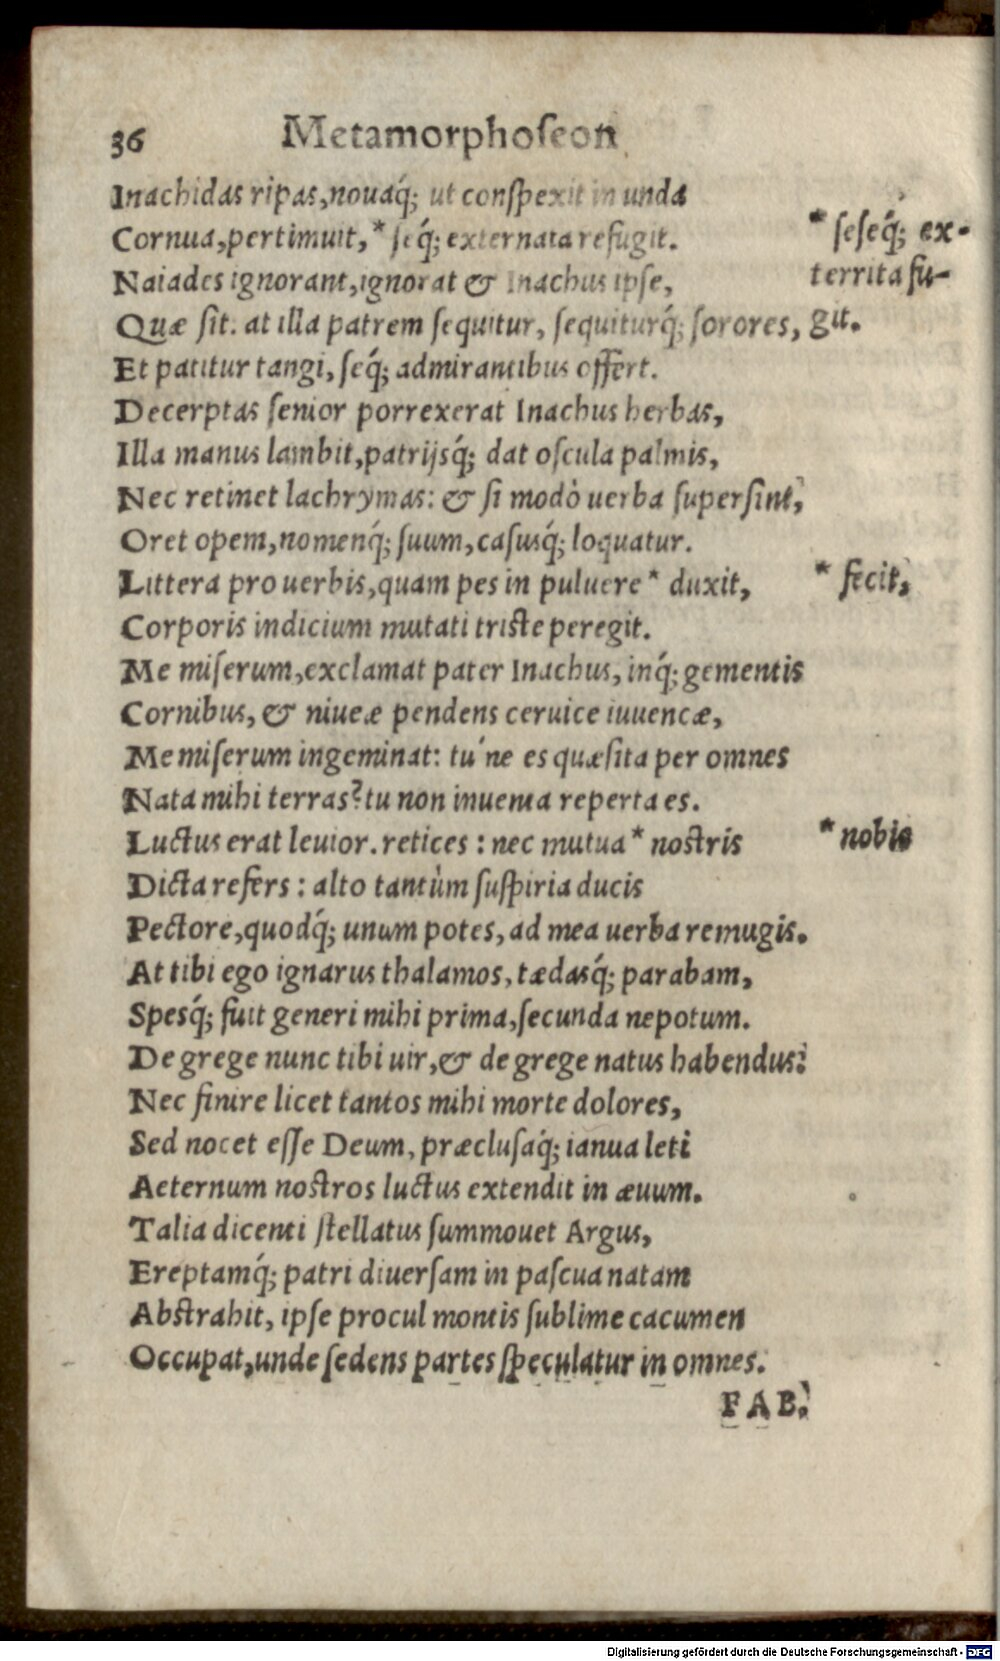 36 Metamorphoſeon
Inachidas ripas, nouaq́; ut conſpexit in unda
Cornua, pertimuit, * ſeq́; externata refugit.
* ſeſeq́; ex-
territa fu-
git.
Naiades ignorant, ignorat & Inachus ipſe,
Quæ ſit. at illa patrem ſequitur, ſequiturq́; ſorores,
Et patitur tangi, ſeq́; admirantibus offert.
Decerptas ſenior porrexerat Inachus herbas,
Illa manus lambit, patrijsq́; dat oſcula palmis,
Nec retinet lachrymas: & ſi modò uerba ſuperſint,
Oret opem, nomenq́; ſuum, caſusq́; loquatur.
Littera pro uerbis, quam pes in puluere * duxit,
* fecit,
Corporis indicium mutati triſte peregit.
Me miſerum, exclamat pater Inachus, inq́; gementis
Cornibus, & niueæ pendens ceruice iuuencæ,
Me miſerum ingeminat: tu ́ne es quæſita per omnes
Nata mihi terras? tu non inuenta reperta es.
Luctus erat leuior. retices: nec mutua * noſtris
* nobis
Dicta refers: alto tantùm ſuſpiria ducis
Pectore, quodq́; unum potes, ad mea uerba remugis.
At tibi ego ignarus thalamos, tædasq́; parabam,
Spesq́; fuit generi mihi prima, ſecunda nepotum.
De grege nunc tibi uir, & de grege natus habendus:
Nec finire licet tantos mihi morte dolores,
Sed nocet eſſe Deum, præcluſaq́; ianua leti
Aeternum noſtros luctus extendit in æuum.
Talia dicenti ſtellatus ſummouet Argus,
Ereptamq́; patri diuerſam in paſcua natam
Abſtrahit, ipſe procul montis ſublime cacumen
Occupat, unde ſedens partes ſpeculatur in omnes.
FAB.
Digitalisierung gefördert durch die Deutsche Forschungsgemeinschaft - DFG